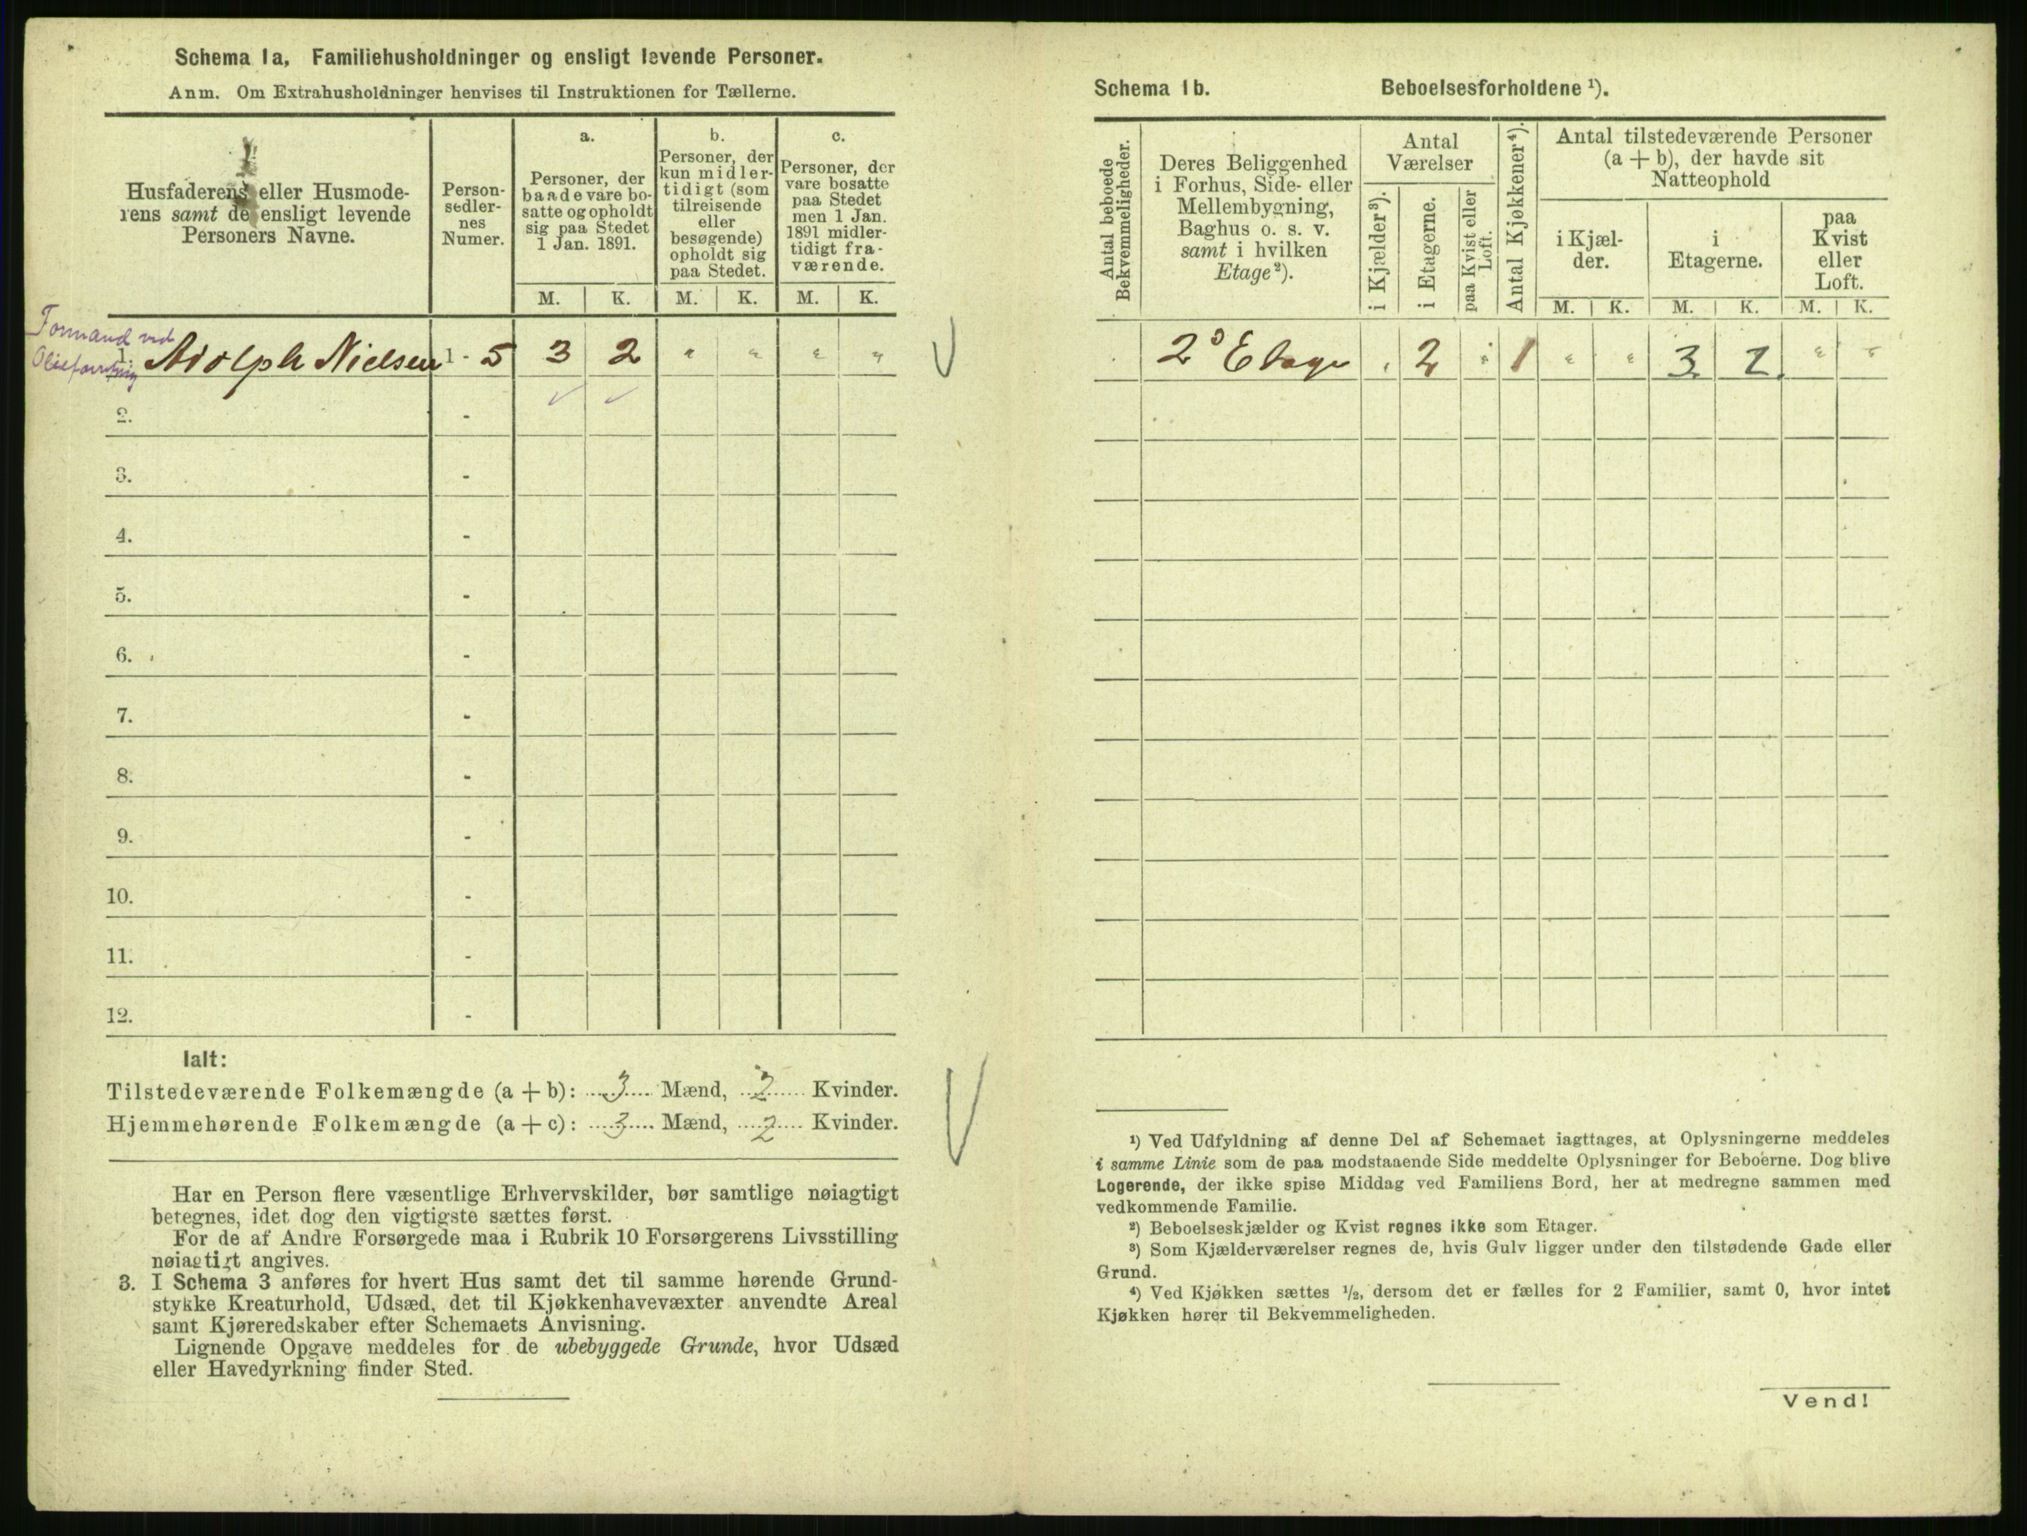 Schema 1a, Familiehusholdninger og ensligt levende Personer.
Anm. Om Extrahusholdninger henvises til Instruktionen for Tællerne.
Husfaderens eller Husmode-
rens samt de ensligt levende
Personers Navne.
Person-
sedler-
nes
Numer.
a.
Personer, der
baade vare bo-
satte og opholdt
sig paa Stedet
1 Jan. 1891.
b.
Personer, der
kun midler-
tidigt (som
tilreisende
eller
besøgende)
opholdt sig
paa Stedet.
c.
Personer, der
vare bosatte
paa Stedet
men 1 Jan.
1891 midler-
tidigt fra-
værende.
M. K. M. K. M. K.
Formand ved
1. Adolph Nielsen 1 - 5 3 2 " " " "
2. -
3. -
4. -
5. -
6. -
7. -
8. -
9. -
10. -
11. -
12. -
Ialt:
Tilstedeværende Folkemængde (a + b): 3 Mænd, 2 Kvinder.
Hjemmehørende Folkemængde (a + c): 3 Mænd, 2 Kvinder.
Har en Person flere væsentlige Erhvervskilder, bør samtlige nøiagtigt
betegnes, idet dog den vigtigste sættes først.
For de af Andre Forsørgede maa i Rubrik 10 Forsørgerens Livsstilling
nøiagtigt angives.
3. I Schema 3 anføres for hvert Hus samt det til samme hørende Grund-
stykke Kreaturhold, Udsæd, det til Kjøkkenhavevæxter anvendte Areal
samt Kjøreredskaber efter Schemaets Anvisning.
Lignende Opgave meddeles for de ubebyggede Grunde, hvor Udsæd
eller Havedyrkning finder Sted.
Schema 1b. Beboelsesforholdene ¹).
Antal beboede
Bekvemmeligheder.
Deres Beliggenhed
i Forhus, Side- eller
Mellembygning,
Baghus o. s. v.
samt i hvilken
Etage ²).
Antal
Værelser
i Kjælder ³).
i Etagerne.
paa Kvist eller
Loft.
Antal Kjøkkener ⁴).
Antal tilstedeværende Personer
(a + b), der havde sit
Natteophold
i Kjæl-
der.
i
Etagerne.
paa
Kvist
eller
Loft.
M. K. M. K. M. K.
2 Etage 2 1 " " 3 2 " "
¹) Ved Udfyldning af denne Del af Schemaet iagttages, at Oplysningerne meddeles
i samme Linie som de paa modstaaende Side meddelte Oplysninger for Beboerne. Dog blive
Logerende, der ikke spise Middag ved Familiens Bord, her at medregne sammen med
vedkommende Familie.
²) Beboelseskjælder og Kvist regnes ikke som Etager.
³) Som Kjælderværelser regnes de, hvis Gulv ligger under den tilstødende Gade eller
Grund.
⁴) Ved Kjøkken sættes ½, dersom det er fælles for 2 Familier, samt 0, hvor intet
Kjøkken hører til Bekvemmeligheden.
Vend!